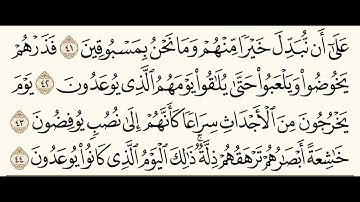 عَلَىٰٓ أَن نُّبَدِّلَ خَيْرًا مِّنْهُمْ وَمَا نَحْنُ بِمَسْبُوقِينَ ٤١ فَذَرْهُمْ
يَخُوضُوا۟ وَيَلْعَبُوا۟ حَتَّىٰ يُلَـٰقُوا۟ يَوْمَهُمُ ٱلَّذِى يُوعَدُونَ ٤٢ يَوْمَ
يَخْرُجُونَ مِنَ ٱلْأَجْدَاثِ سِرَاعًا كَأَنَّهُمْ إِلَىٰ نُصُبٍ يُوفِضُونَ ٤٣
خَـٰشِعَةً أَبْصَـٰرُهُمْ تَرْهَقُهُمْ ذِلَّةٌ ۚ ذَٰلِكَ ٱلْيَوْمُ ٱلَّذِى كَانُوا۟ يُوعَدُونَ ٤٤